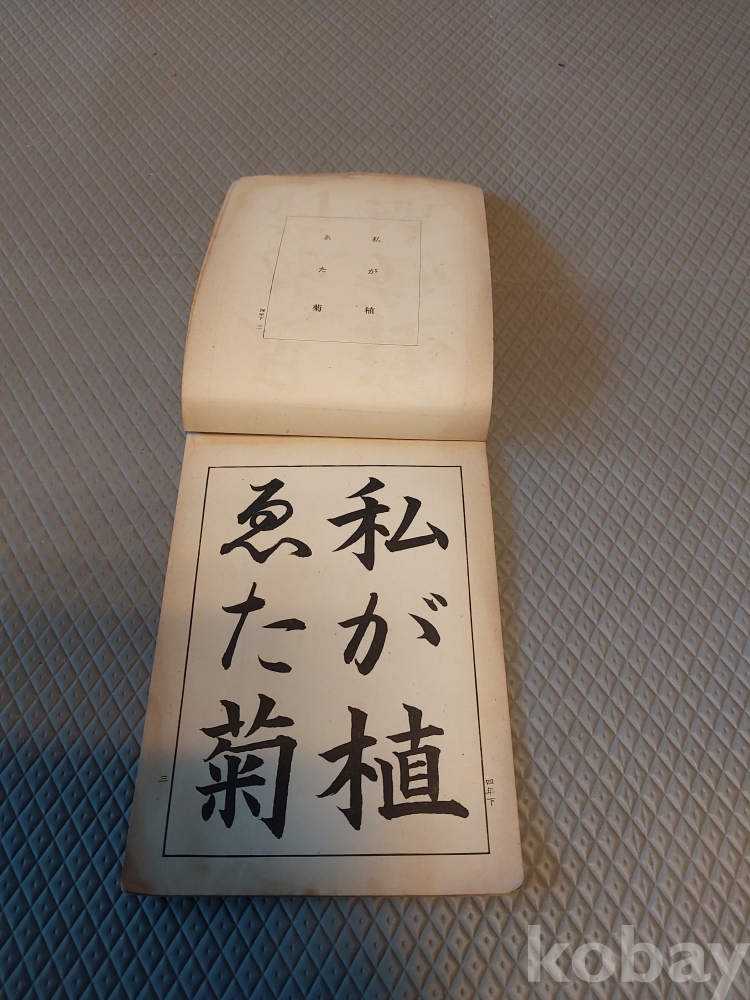 私が植
ゑた菊
四年下 三
私が植
ゑた菊
四年下
三
kobay